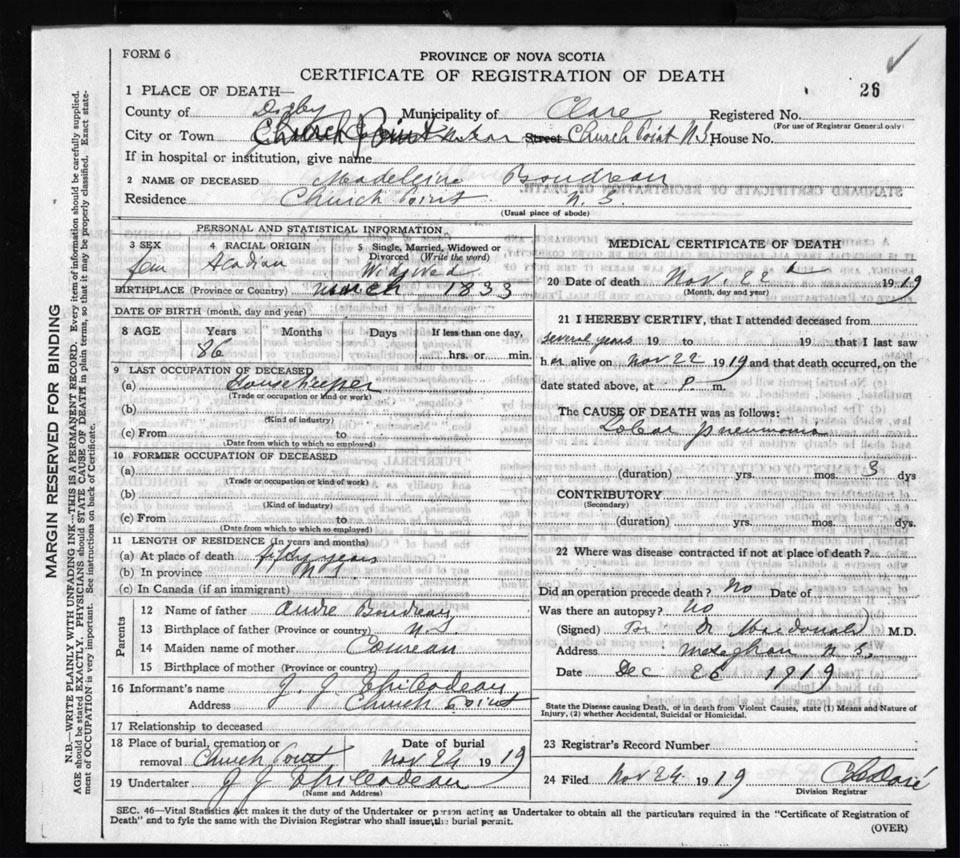 FORM 6
PROVINCE OF NOVA SCOTIA
CERTIFICATE OF REGISTRATION OF DEATH
26
1 PLACE OF DEATH—
County of Digby Municipality of Clare Registered No.
(For use of Registrar General only)
City or Town Church Point Street Church Point N.S. House No.
If in hospital or institution, give name
2 NAME OF DECEASED Madeleine Boudreau
Residence Church Point N. S.
(Usual place of abode)
PERSONAL AND STATISTICAL INFORMATION
3 SEX 4 RACIAL ORIGIN 5 Single, Married, Widowed or Divorced (Write the word)
fem Acadian Widowed
BIRTHPLACE (Province or Country) March 1833
DATE OF BIRTH (month, day and year)
8 AGE Years Months Days If less than one day,
86 hrs. or min.
9 LAST OCCUPATION OF DECEASED
(a) Housekeeper
(Trade or occupation or kind or work)
(b)
(Kind of industry)
(c) From to
(Date from which to which so employed)
10 FORMER OCCUPATION OF DECEASED
(a)
(Trade or occupation or kind of work)
(b)
(Kind of industry)
(c) From to
(Date from which to which so employed)
11 LENGTH OF RESIDENCE (In years and months)
(a) At place of death fifty years
(b) In province N. S.
(c) In Canada (if an immigrant)
Parents
12 Name of father Andre Boudreau
13 Birthplace of father (Province or country) N. S.
14 Maiden name of mother Comeau
15 Birthplace of mother (Province or country)
16 Informant's name J. J. Thibodeau
Address Church Point
17 Relationship to deceased
18 Place of burial, cremation or removal Church Point Date of burial Nov 24 1919
19 Undertaker J J Thibodeau
(Name and Address)
MEDICAL CERTIFICATE OF DEATH
20 Date of death Nov. 22 1919
(Month, day and year)
21 I HEREBY CERTIFY, that I attended deceased from
several years 19 to 19 that I last saw
her alive on Nov 22 1919 and that death occurred, on the
date stated above, at P. m.
The CAUSE OF DEATH was as follows:
Lobar pneumonia
(duration) yrs. mos. 3 dys
CONTRIBUTORY
(Secondary)
(duration) yrs. mos. dys.
22 Where was disease contracted if not at place of death?
Did an operation precede death? No Date of
Was there an autopsy? No
(Signed) For Dr MacDonald M.D.
Address Meteghan N S.
Date Dec 26 1919
State the Disease causing Death, or in death from Violent Causes, state (1) Means and Nature of
Injury, (2) whether Accidental, Suicidal or Homicidal.
23 Registrar's Record Number
24 Filed Nov 24 1919
Division Registrar
SEC. 46—Vital Statistics Act makes it the duty of the Undertaker or person acting as Undertaker to obtain all the particulars required in the "Certificate of Registration of
Death" and to fyle the same with the Division Registrar who shall issue the burial permit.
(OVER)
MARGIN RESERVED FOR BINDING
N.B.—WRITE PLAINLY WITH UNFADING INK—THIS IS A PERMANENT RECORD. Every item of information should be carefully supplied.
AGE should be stated EXACTLY. PHYSICIANS should STATE CAUSE OF DEATH in plain terms, so that it may be properly classified. Exact state-
ment of OCCUPATION is very important. See instructions on back of Certificate.